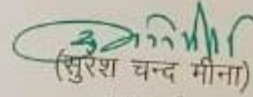 (सुरेश चन्द मीना)